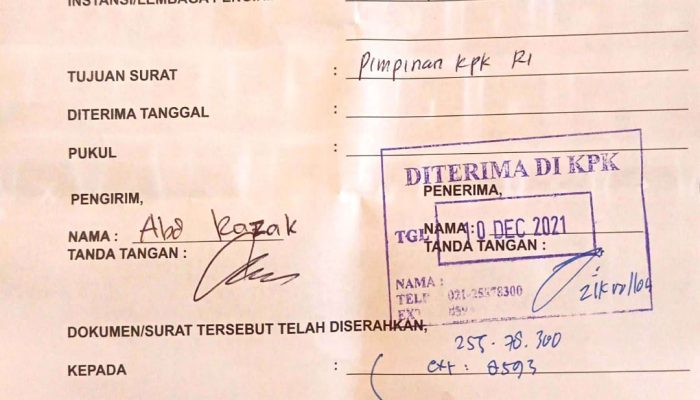 INSTANSI/LEMBAGA
TUJUAN SURAT : Pimpinan KPK RI
DITERIMA TANGGAL :
PUKUL :
DITERIMA DI KPK
PENGIRIM,
PENERIMA,
NAMA : Abd Razak
NAMA :
TGL 10 DEC 2021
TANDA TANGAN :
TANDA TANGAN :
NAMA :
TELP 021-25578300
EXT
DOKUMEN/SURAT TERSEBUT TELAH DISERAHKAN,
255.78.300
KEPADA :
ext : 8593